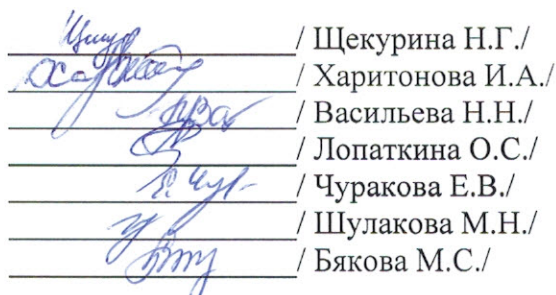 / Щекурина Н.Г./
/ Харитонова И.А./
/ Васильева Н.Н./
/ Лопаткина О.С./
/ Чуракова Е.В./
/ Шулакова М.Н./
/ Бякова М.С./